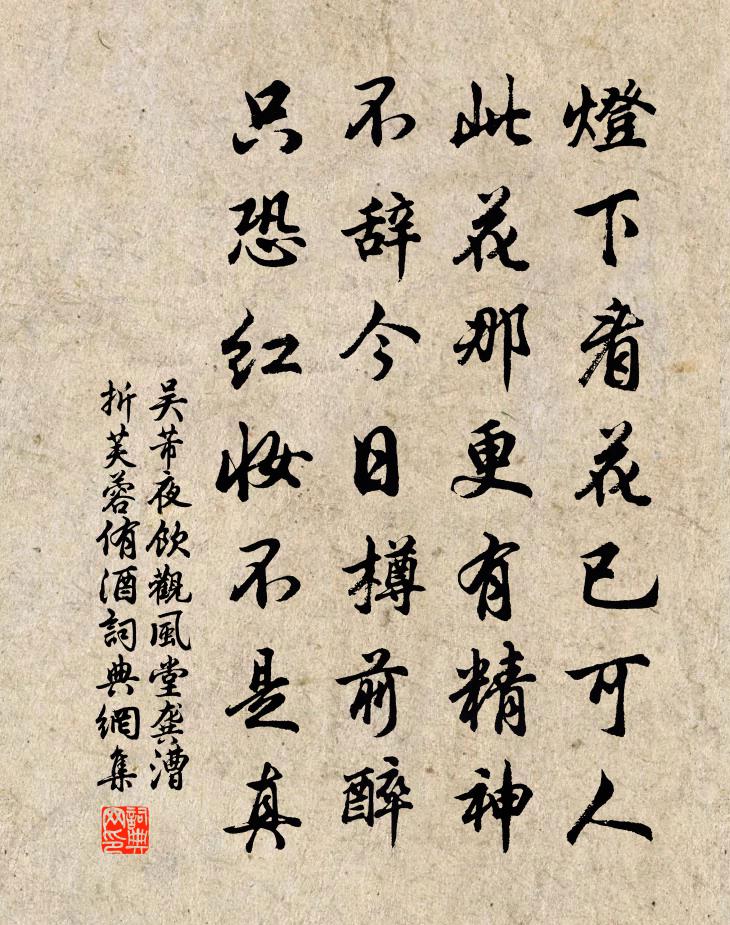 燈下看花已可人
此花那更有精神
不辞今日樽前醉
只恐红妆不是真
吴芾夜飲觀風堂龔漕
折芙蓉侑酒詞典網集
詞典网印